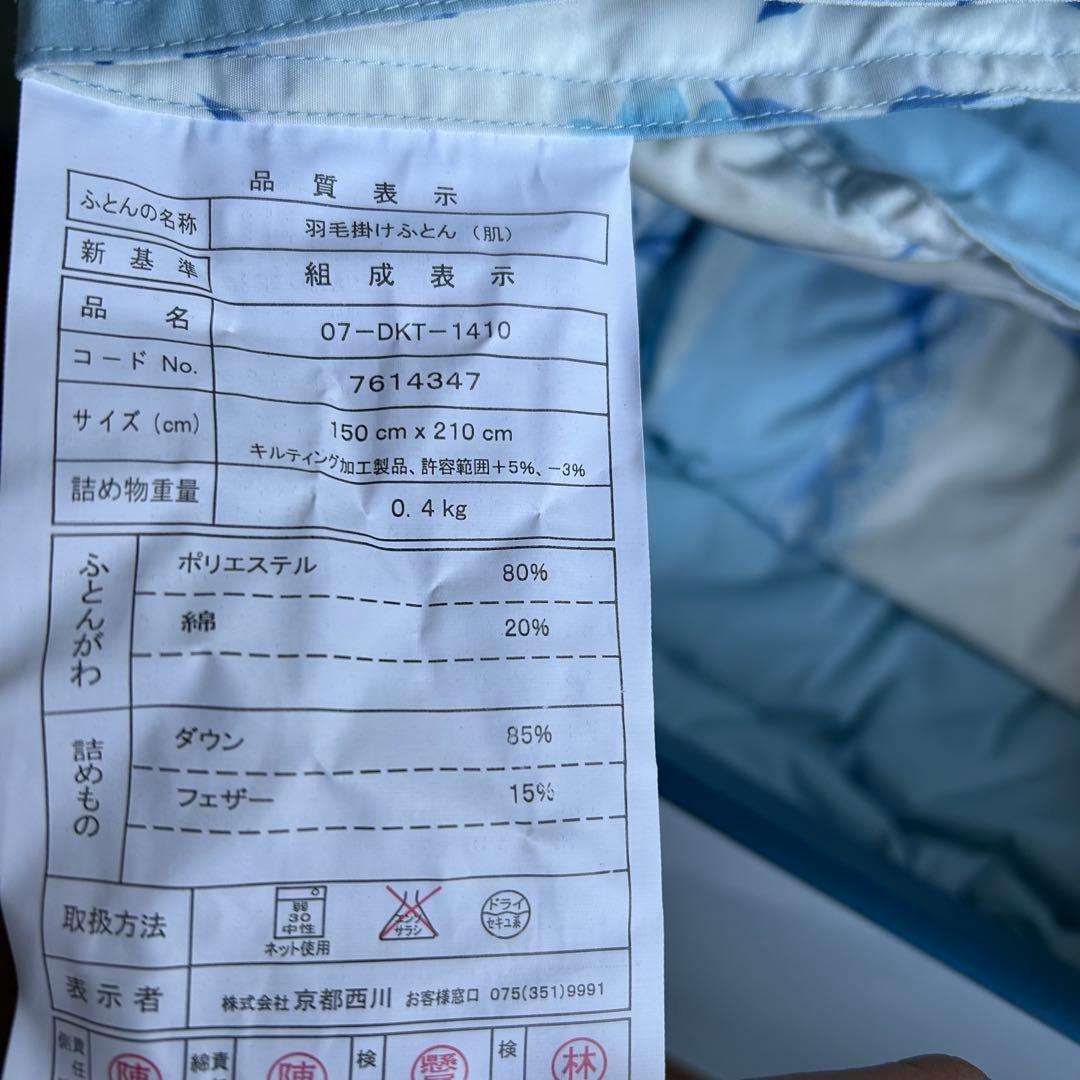 品質表示
ふとんの名称 羽毛掛けふとん（肌）
新基準 組成表示
品名 07-DKT-1410
コードNo. 7614347
サイズ(cm) 150 cm x 210 cm
キルティング加工製品、許容範囲＋5%、－3%
詰め物重量 0.4kg
ふとんがわ ポリエステル 80%
綿 20%
詰めもの ダウン 85%
フェザー 15%
取扱方法 弱 30 中性 ネット使用 エンソサラシ ドライ セキユ系
表示者 株式会社 京都西川 お客様窓口 075(351)9991
側責任 陳 綿責任 陳 検 懸 検 林